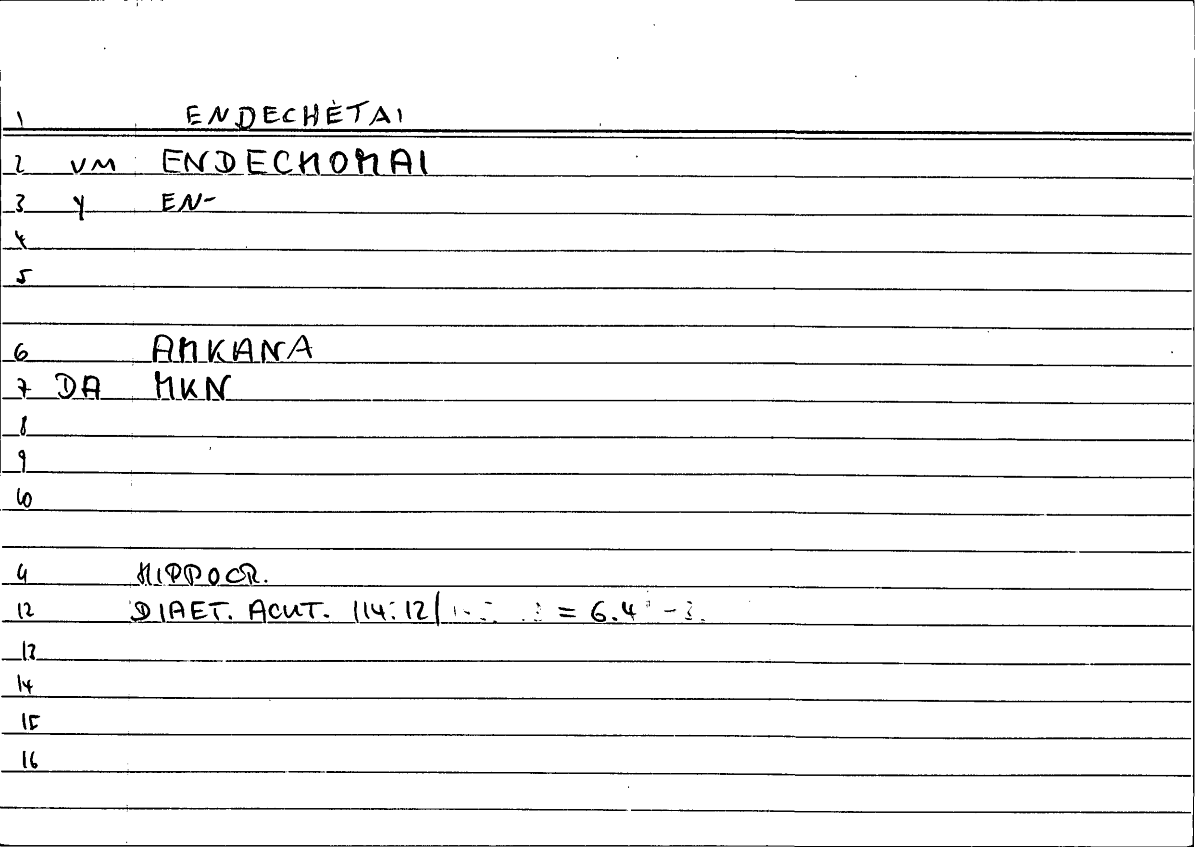 1 ENDECHĖTAI
2 VM ENDECHOMAI
3 Y EN-
4
5
6 AMKANA
7 DA MKN
8
9
10
11 HIPPOCR.
12 DIAET. ACUT. 114:12/ = 6.4
13
14
15
16